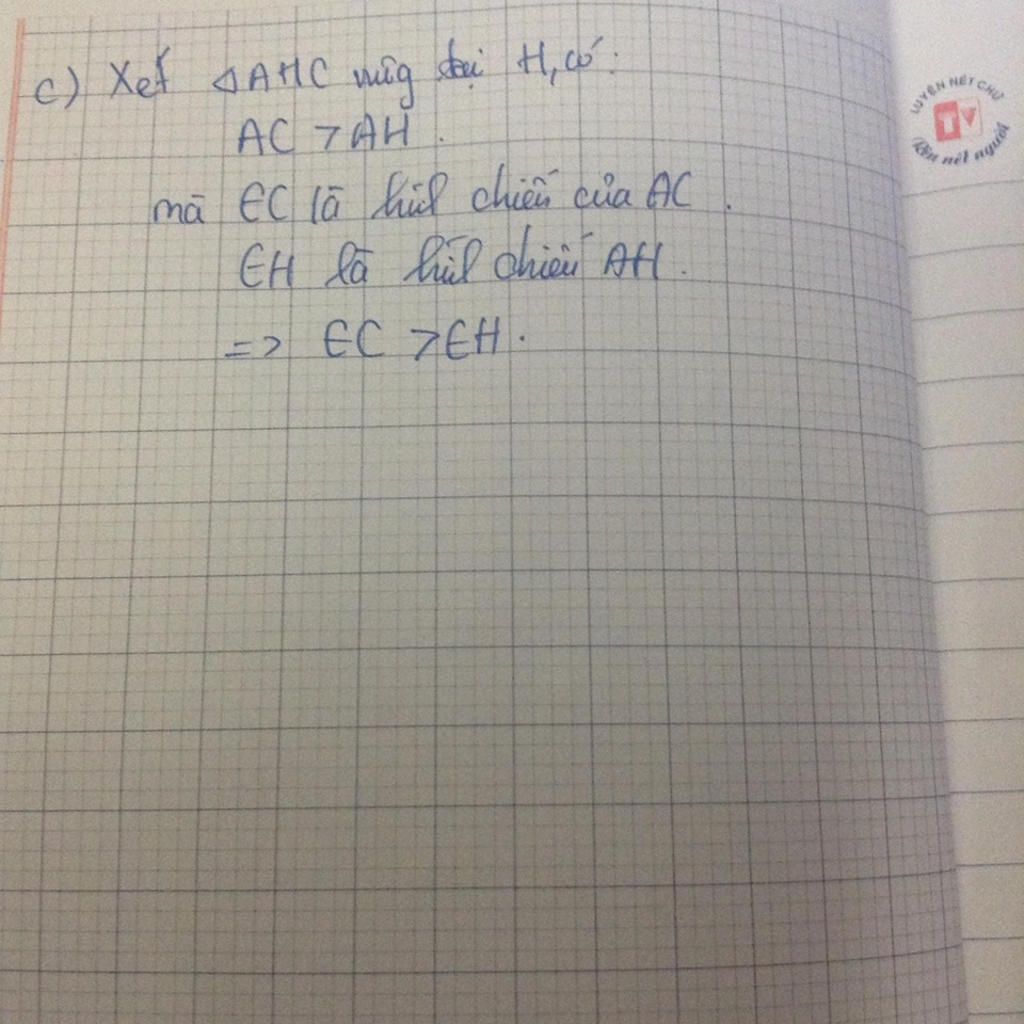 c) Xét △AHC vuông tại H, có:
AC > AH.
mà EC là hình chiếu của AC.
EH là hình chiếu AH.
=> EC > EH.
LUYỆN NÉT CHỮ
TV
Rèn nết người